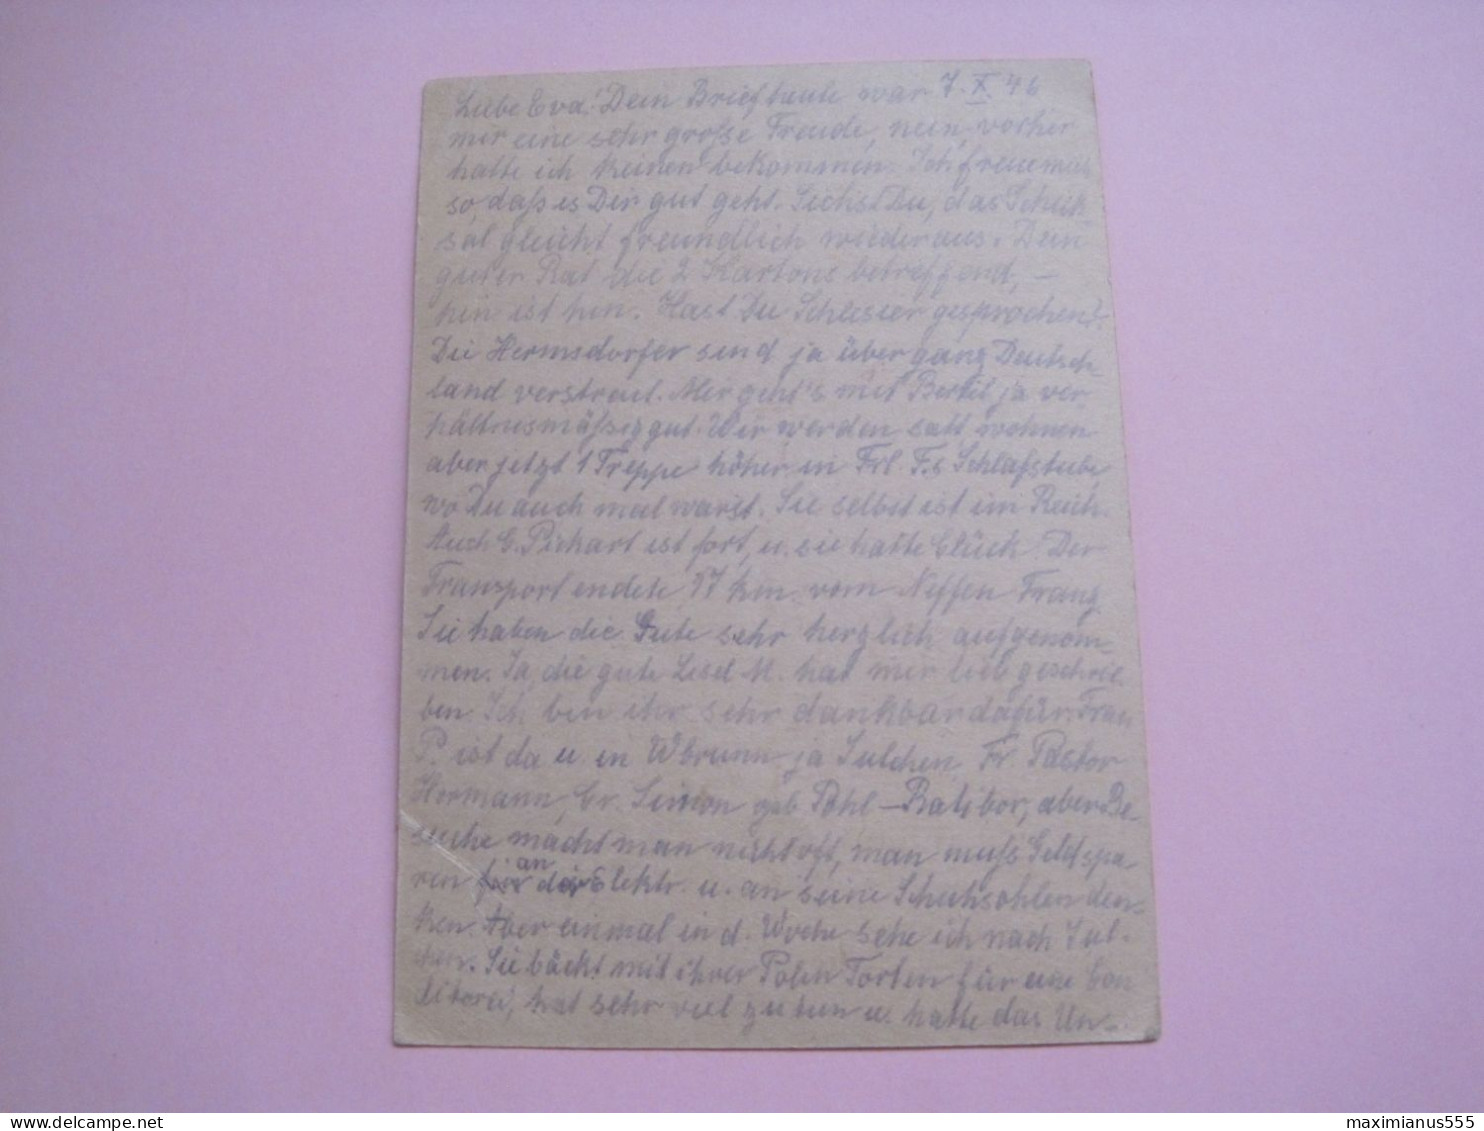 Liebe Eva! Dein Brief heute war 7. X. 46
mir eine sehr große Freude, nein, vorher
hatte ich keinen bekommen. Ich freue mich
so, daß es Dir gut geht. Siehst Du, das Schick-
sal gleicht freundlich wieder aus. Dein
guter Rat die 2 Kartons betreffend, –
hin ist hin. Hast Du Schlesier gesprochen?
Die Hermsdorfer sind ja über ganz Deutsch-
land verstreut. Mir geht's mit Bertel ja ver-
hältnismäßig gut. Wir werden satt, wohnen
aber jetzt 1 Treppe höher in Frl. F.s Schlafstube,
wo Du auch mal warst. Sie selbst ist im Reich.
Auch G. Pichart ist fort, u. sie hatte Glück. Der
Transport endete 17 km. vom Neffen Franz
Sie haben die Gute sehr herzlich aufgenom-
men. Ja, die gute Lisel M. hat mir lieb geschrie
ben. Ich bin ihr sehr dankbar dafür. Frau
P. ist da u. in Wbrunn ja Julchen, Fr. Pastor
Hormann, Fr. Simon geb. Pohl – Ratibor, aber Be-
suche macht man nicht oft, man muß Geld spa
ren an der Elektr. u. an seine Schuhsohlen den-
ken. Aber einmal in d. Woche sehe ich nach Jul-
chen. Sie bäckt mit ihrer Polin Torten für eine Con
ditorei, hat sehr viel zu tun u. hatte das Un-
delcampe.net
maximianus555